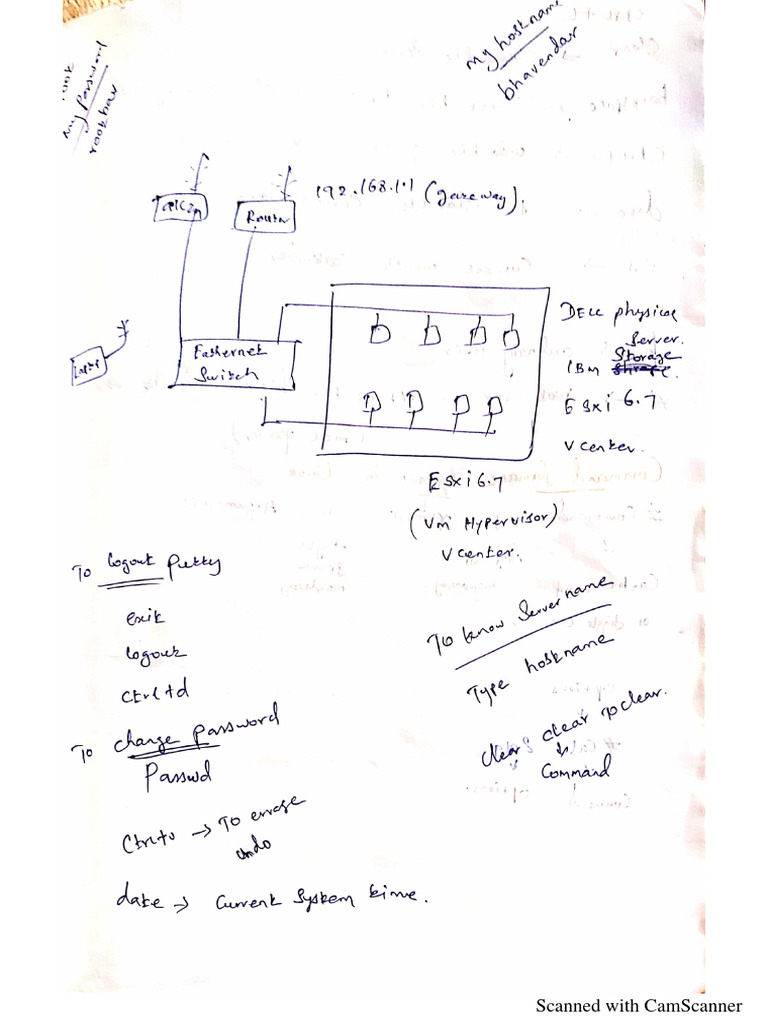 my hostname
bhavendar
root
my password
rookbar
192.168.1.1 (gateway).
Router
DELL physical
Server.
IBM Storage
Esxi 6.7
Vcenter.
Eathernet
Switch
Esxi 6.7
(Vm Hypervisor)
Vcenter.
To logout putty
exit
logout
Ctrl+d
To know Server name
Type hostname
To change password
Passwd
clear clear to clear.
Command
Ctrl+u → To errage
undo
date → Current System time.
Scanned with CamScanner